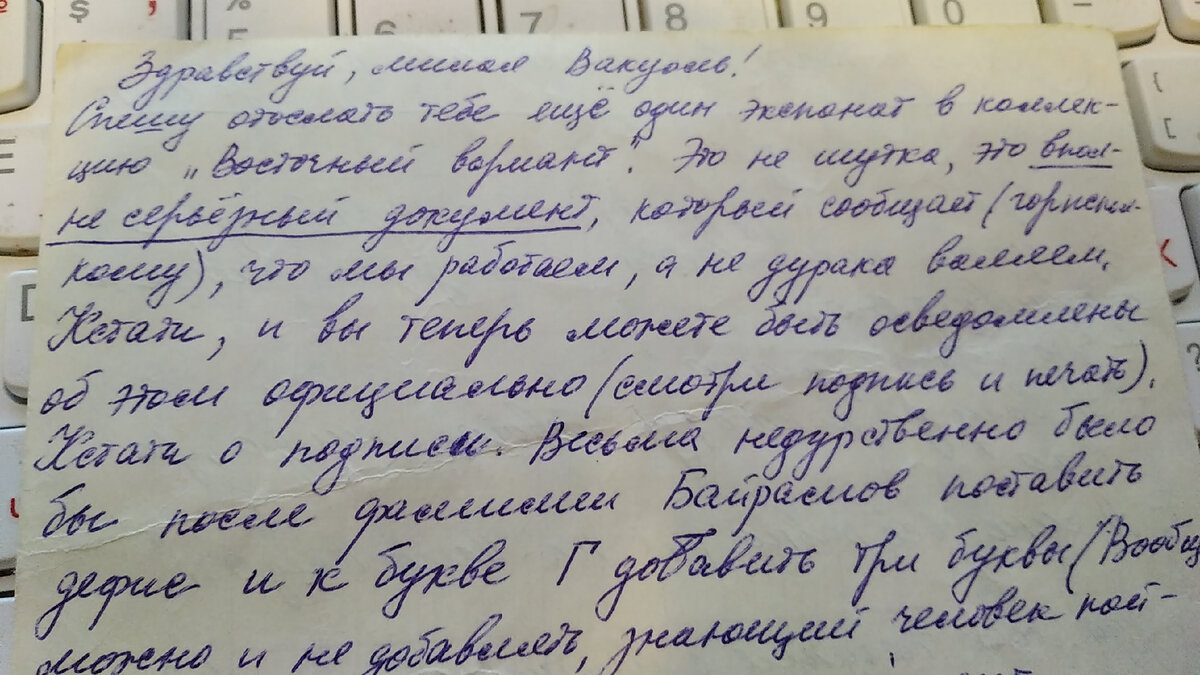 Здравствуй, милая Вакуоль!
Спешу отослать тебе ещё один экспонат в коллек-
цию „Восточный вариант". Это не шутка, это впол-
не серьёзный документ, который сообщает (горисполкому), что мы работаем, а не дурака валяем.
Кстати, и вы теперь можете быть осведомлены
об этом официально (смотри подпись и печать).
Кстати о подписи. Весьма недурственно было
бы после фамилии Байрамов поставить
дефис и к букве Г добавить три буквы (Вообщ
можно и не добавлять, знающий человек пой-